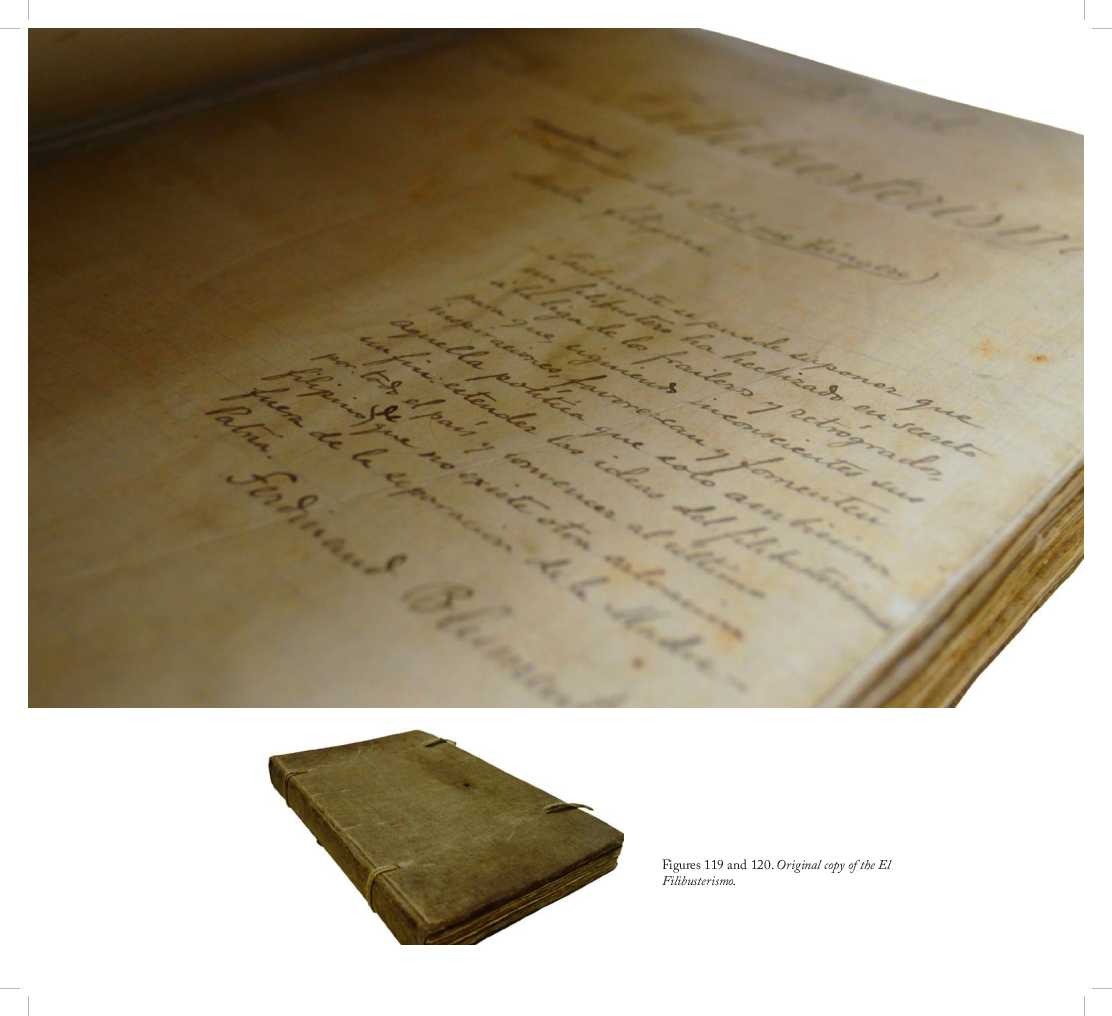 Filibusterismo
filipino
Facilmente se puede suponer que
un filibustero ha hechizado en secreto
á la liga de los fraileros y retrógrados,
para que, siguiendo inconscientes sus
inspiraciones, favorezcan y fomenten
aquella política que solo ambiciona
un fin: extender las ideas del filibusterismo
por todo el pais y convencer al último
filipino de que no existe otra salvacion
fuera de la separacion de la Madre
Patria.
Ferdinand Blument
Figures 119 and 120. Original copy of the El
Filibusterismo.